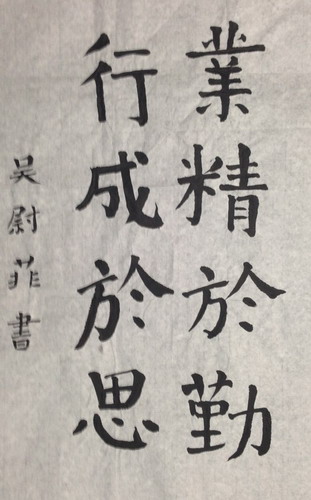 業精於勤
行成於思
吳尉菲書